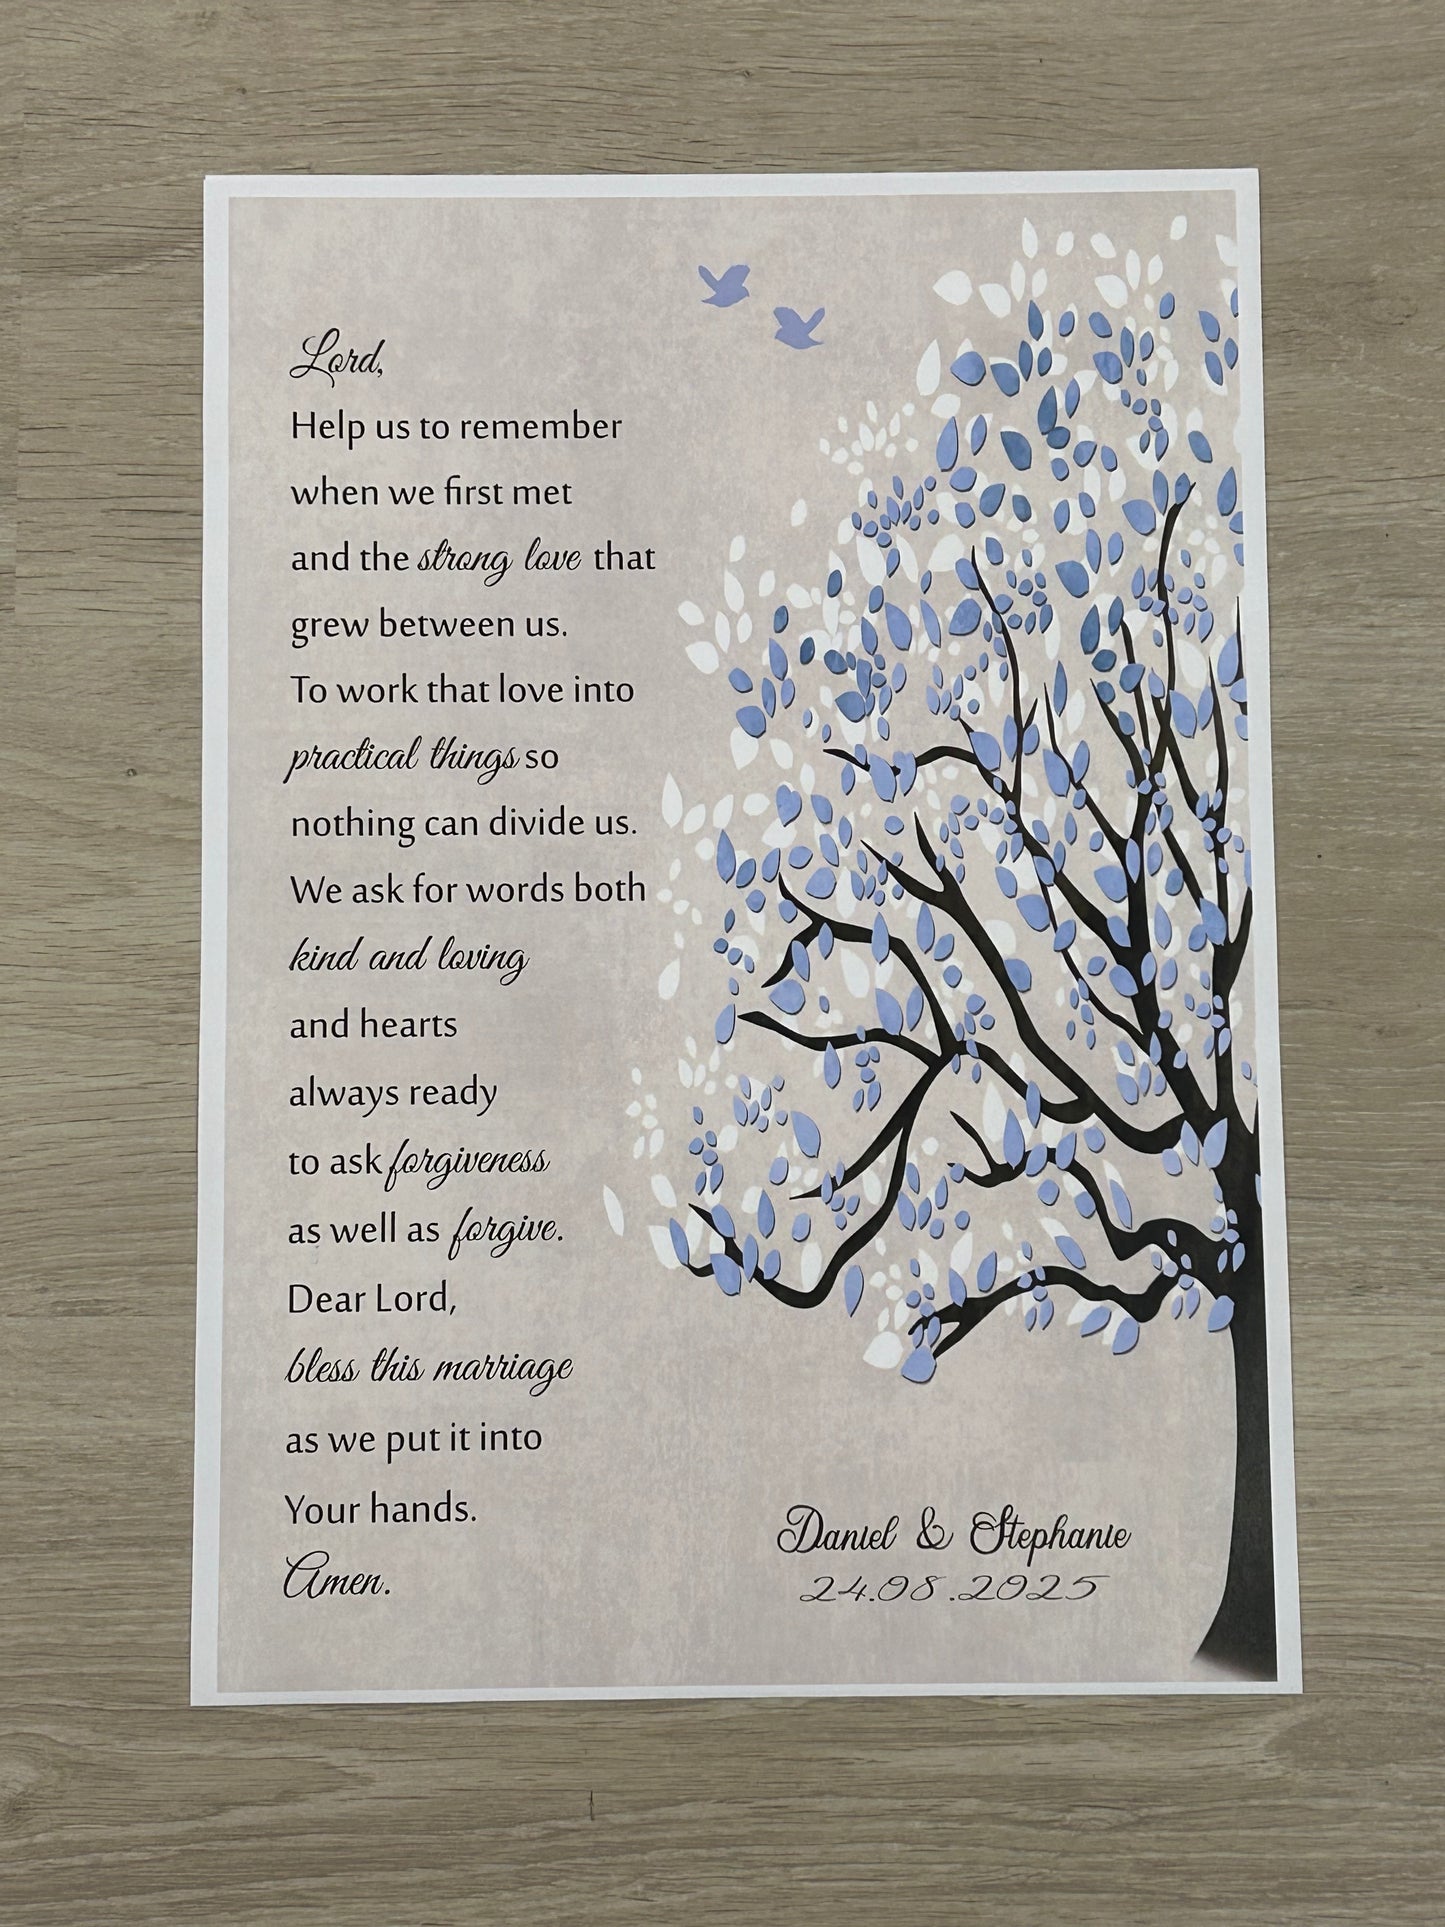 Lord,
Help us to remember
when we first met
and the strong love that
grew between us.
To work that love into
practical things so
nothing can divide us.
We ask for words both
kind and loving
and hearts
always ready
to ask forgiveness
as well as forgive.
Dear Lord,
bless this marriage
as we put it into
Your hands.
Amen.
Daniel & Stephanie
24.08.2025